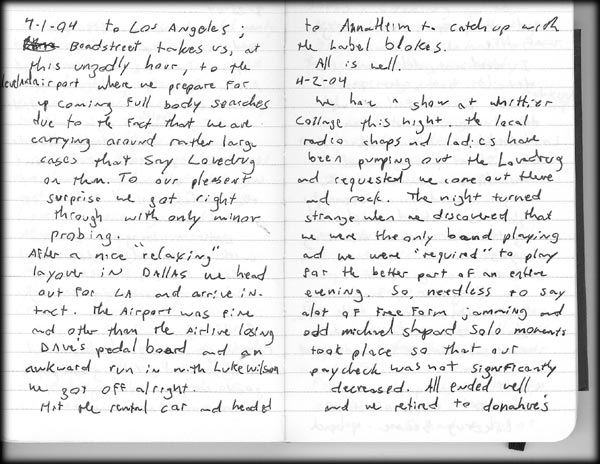 4-1-04 to Los Angeles;
Beadstreet takes us, at
this ungodly hour, to the
Cleveland airport where we prepare for
up coming full body searches
due to the fact that we are
carrying around rather large
cases that say Lovedrug
on them. To our pleasent
surprise we got right
through with only minor
probing.
After a nice "relaxing"
layover in DALLAS we head
out for LA and arrive in-
tact. The Airport was fine
and other than the Airline losing
DAve's pedal board and an
awkward run in with Luke Wilson
we got off alright.
Hit the rental car and headed
to AnnaHeim to catch up with
the Label blokes.
All is well.
4-2-04
We have a show at whittier
College this night. The local
radio chaps and ladies have
been pumping out the Lovedrug
and requested we come out there
and rock. The night turned
strange when we discovered that
we were the only band playing
and we were "required" to play
for the better part of an entire
evening. So, needless to say
alot of free form jamming and
odd michael shepard solo moments
took place so that our
paycheck was not significantly
decreased. All ended well
and we retired to donahue's